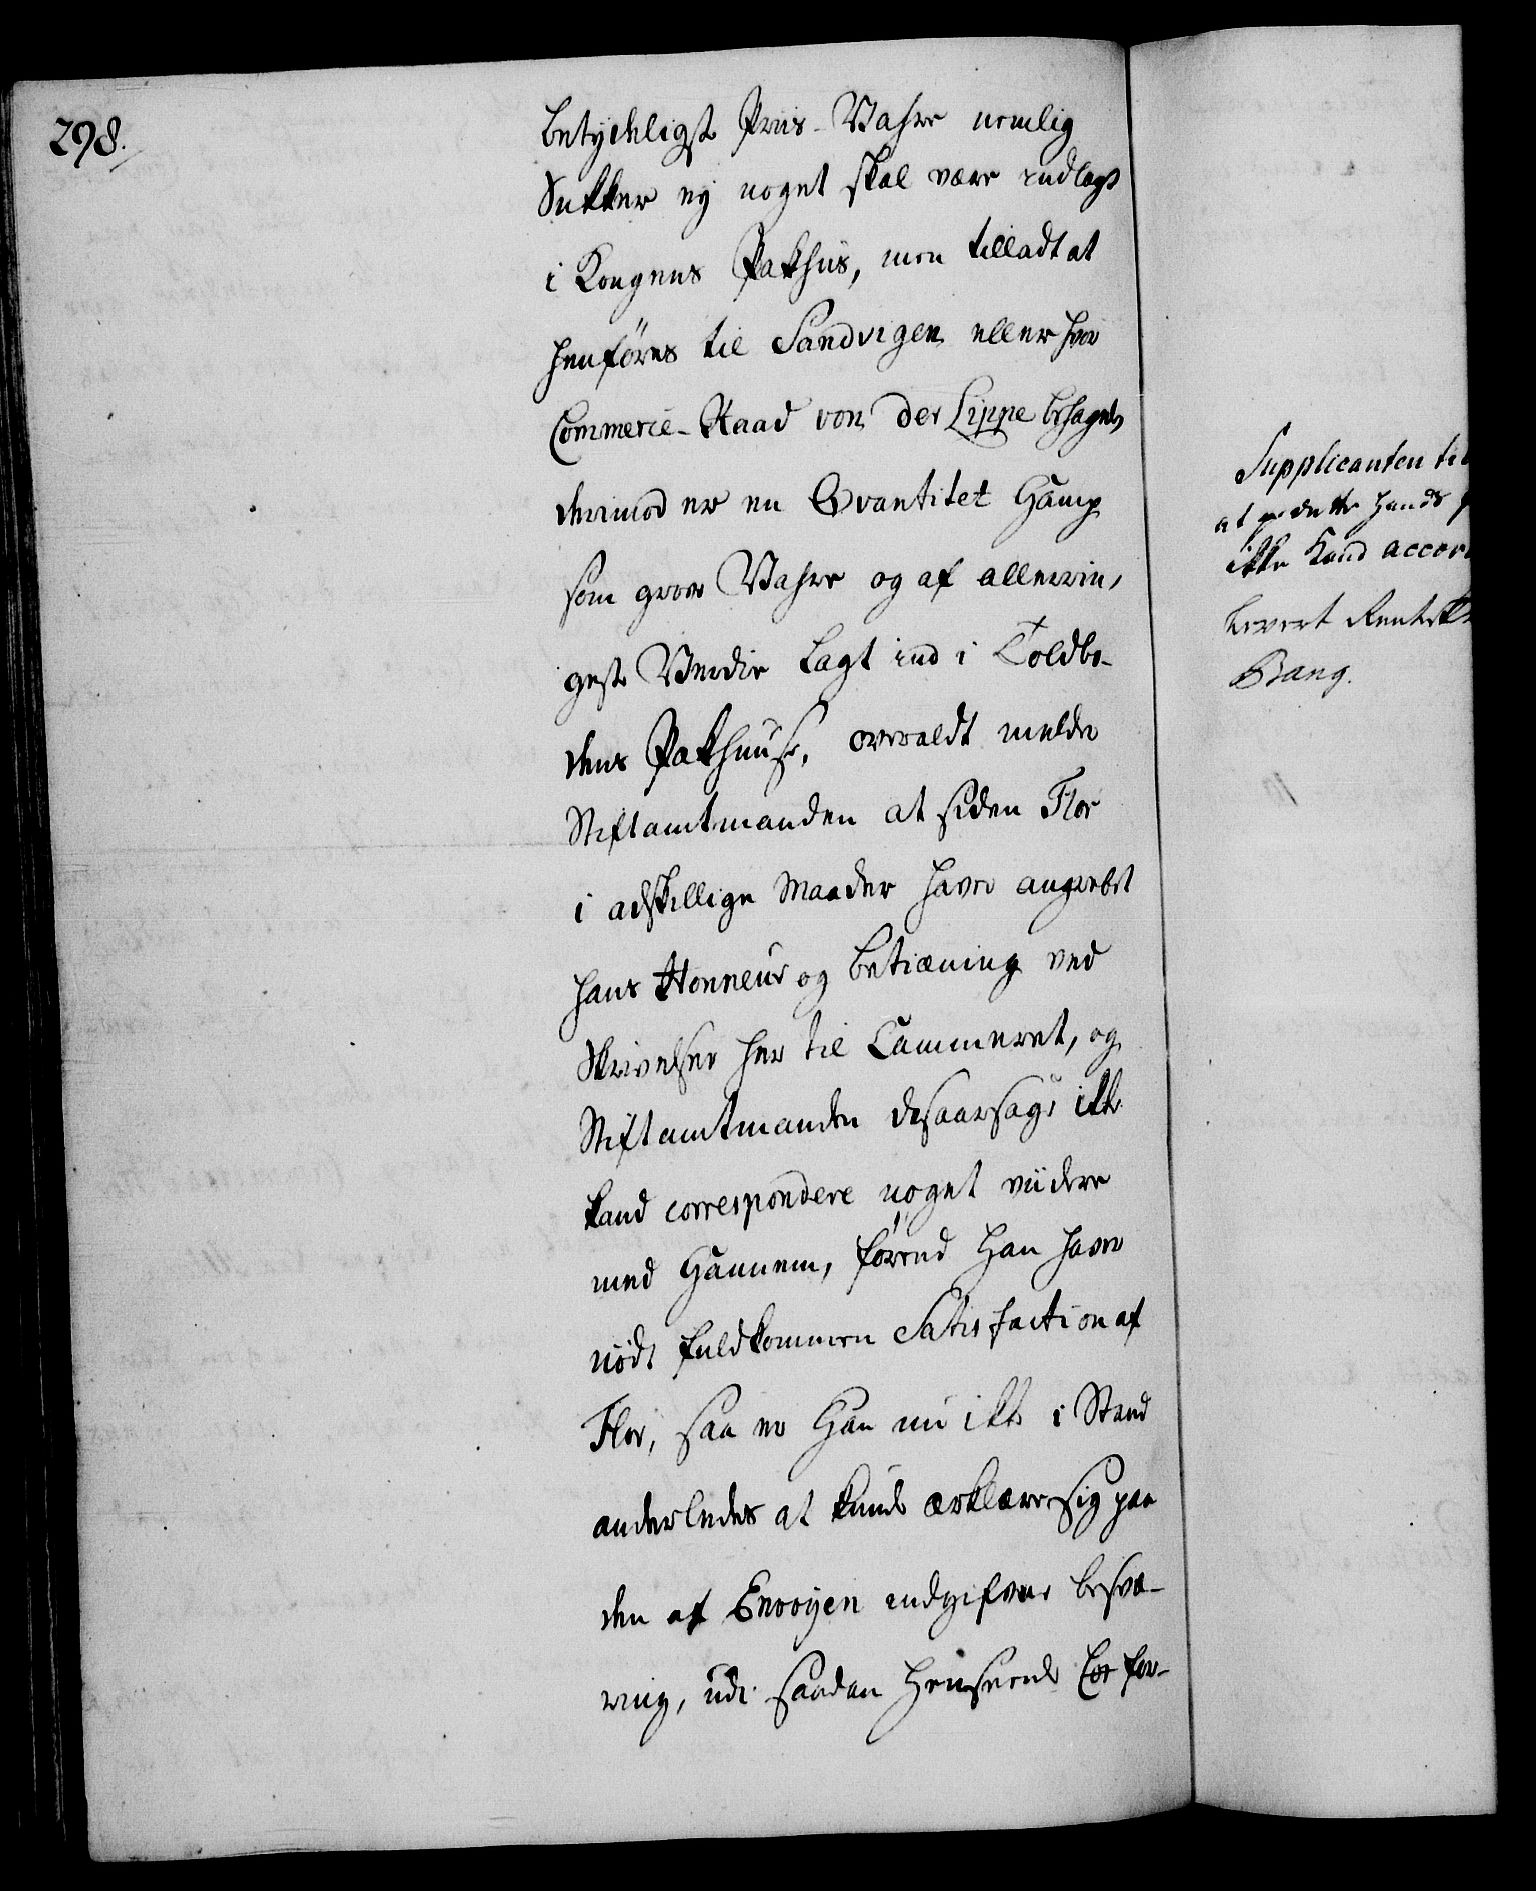 298.
betydeligste Priis-Vahre nemlig
Sukker ey noget skal være indlagt
i Kongens Pakhus, men tilladt at
henføres til Sandvigen eller hvor
Commerce-Raad von der Lippe behagede,
derimod er en Qvantitet Hamp
som grov Vahre og af allerrin-
geste Verdie lagt ind i Toldbo-
dens Pakhuuse, overaldt melder
Stiftamtmanden at siden Flor
i adskillige Maader haver angrebet
hans Honneur og betiening ved
Skrivelser her til Cammeret, og
Stiftamtmanden desaarsage ikke
kand correspondere noget viidere
med Hannem, førend Han haver
nødt fuldkommen Satisfaction af
Flor, saa er Han nu ikke i Stand
anderledes at kunde erklære sig paa
den af Envoyen indgifvne besvæ-
ring, udi saadan Henseende for-
Supplicanten til
at dette hands
ikke Kand accor
levert Rentesk
Bang.